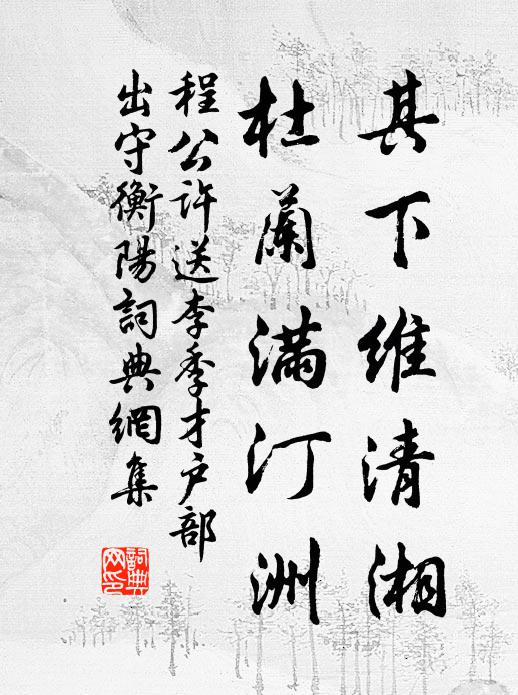 其下维清湘
杜蘭滿汀洲
程公许送李季才户部
出守衡陽詞典網集
詞典
网印